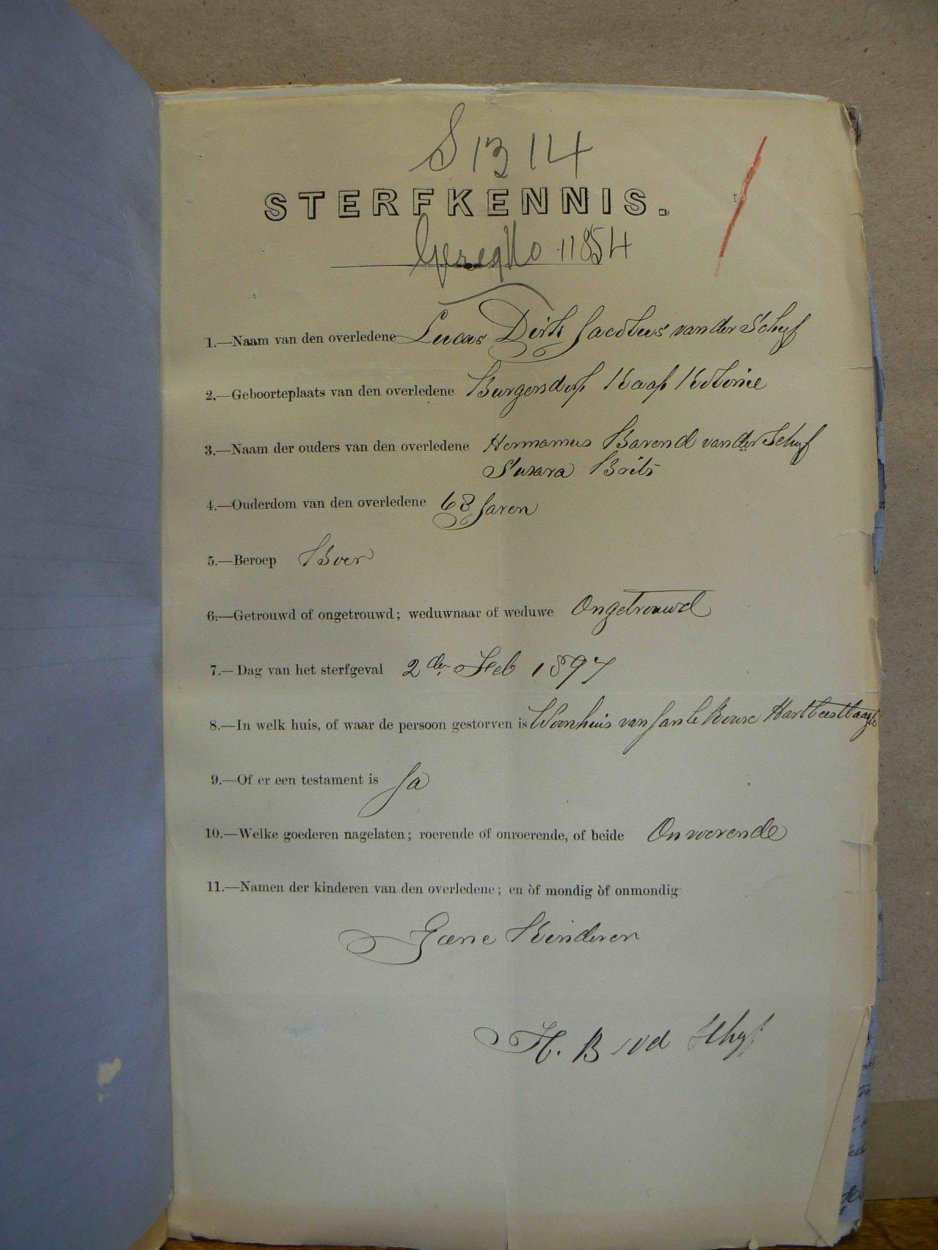 S 1314
STERFKENNIS.
11854
1.—Naam van den overledene Lucas Dirk Jacobus van der Schyf
2.—Geboorteplaats van den overledene Burgersdorp Kaap Kolonie
3.—Naam der ouders van den overledene Hermanus Barend van der Schyf
Susara Brits
4.—Ouderdom van den overledene 68 Jaren
5.—Beroep Boer
6.—Getrouwd of ongetrouwd; weduwnaar of weduwe Ongetrouwd
7.—Dag van het sterfgeval 2de Feb 1897
8.—In welk huis, of waar de persoon gestorven is Woonhuis van Jan le
9.—Of er een testament is Ja
10.—Welke goederen nagelaten; roerende of onroerende, of beide Onroerende
11.—Namen der kinderen van den overledene; en òf mondig òf onmondig
Gæne Kinderen
H. B vd Schyf